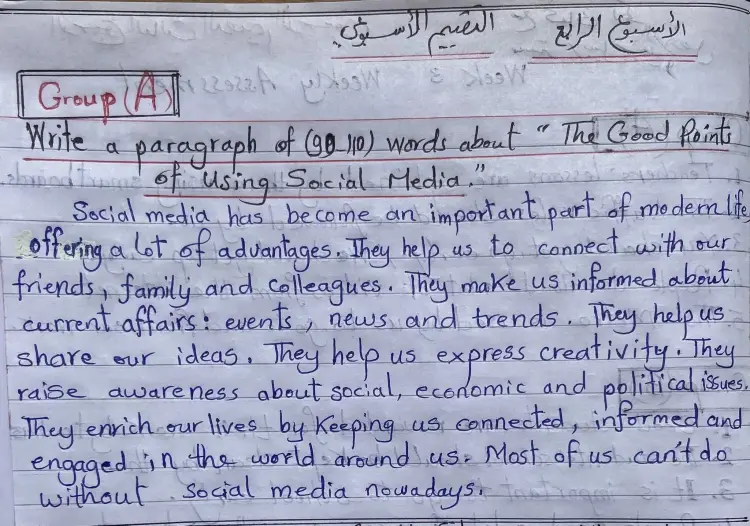 الأسبوع الرابع التقييم الأسبوعي
Group (A)
Write a paragraph of (90-110) words about "The Good Points
of using Social Media."
Social media has become an important part of modern life,
offering a lot of advantages. They help us to connect with our
friends, family and colleagues. They make us informed about
current affairs: events, news and trends. They help us
share our ideas. They help us express creativity. They
raise awareness about social, economic and political issues.
They enrich our lives by keeping us connected, informed and
engaged in the world around us. Most of us can't do
without social media nowadays.